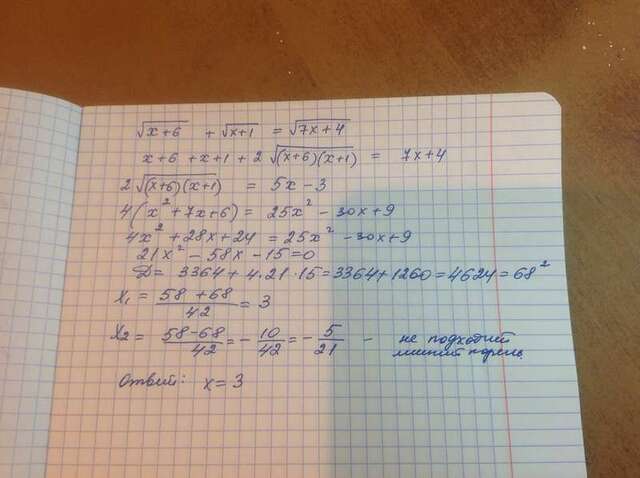 √(x+6) + √(x+1) = √(7x+4)
x+6 + x+1 + 2√((x+6)(x+1)) = 7x+4
2√((x+6)(x+1)) = 5x-3
4(x²+7x+6) = 25x² - 30x+9
4x² + 28x+24 = 25x² - 30x+9
21x² - 58x - 15=0
D = 3364 + 4·21·15 = 3364+1260 = 4624 = 68²
x₁ = (58+68)/42 = 3
x₂ = (58-68)/42 = -10/42 = -5/21 - не подходит
лишний корень
Ответ: x=3